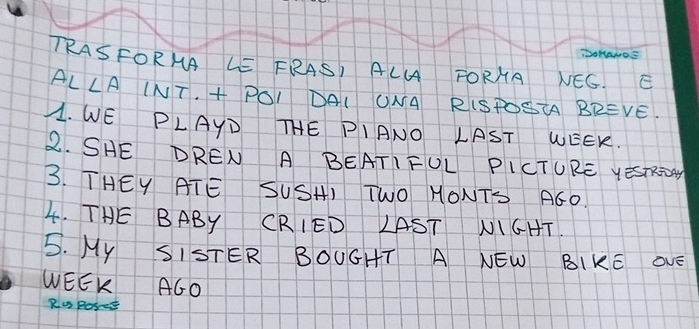 DOMANDE
TRASFORMA LE FRASI ALLA FORMA NEG. E
ALLA INT. + POI DAI UNA RISPOSTA BREVE.
1. WE PLAYD THE PIANO LAST WEEK.
2. SHE DREN A BEATIFUL PICTURE YESTREDAY
3. THEY ATE SUSHI TWO MONTS AGO.
4. THE BABY CRIED LAST NIGHT.
5. MY SISTER BOUGHT A NEW BIKE ONE
WEEK AGO
RISPOSTE